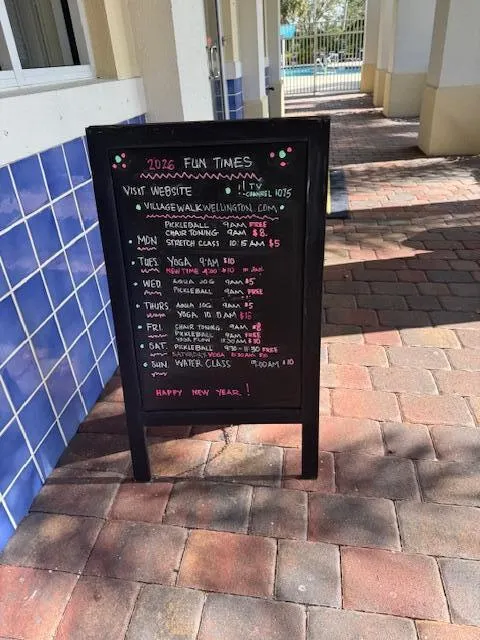 2026 FUN TIMES
VISIT WEBSITE !! TV CHANNEL 1075
VILLAGEWALKWELLINGTON.COM
PICKLEBALL 9AM FREE
CHAIR TONING 9AM $8
MON STRETCH CLASS 10:15AM $5
TUES YOGA 9AM $10
NEW TIME $10
WED AQUA JOG 9AM $5
PICKLEBALL 9AM FREE
THURS AQUA JOG 9AM $5
YOGA AM
FRI. CHAIR TONING 9AM $8
PICKLEBALL 9AM FREE
YOGA FLOW $10
SAT. PICKLEBALL 9:30-11:30 FREE
SATURDAY YOGA
SUN. WATER CLASS 9:00AM $10
HAPPY NEW YEAR!